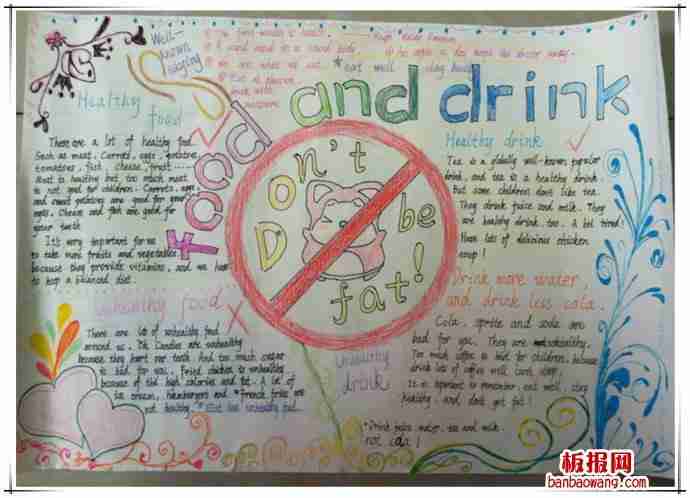 Well-
known
saying
The first wealth is health.
A sound mind in a sound body.
We are what we eat. *eat well stay healthy
food and drink
Healthy
food
There are a lot of healthy food.
Such as meat, carrots, eggs, potatoes,
tomatoes, fish, cheese, fruit
Meat is healthy but too much meat
is not good for children. Carrots, eggs
and sweet potatoes are good for your
eyes. Cheese and fish are good for
your teeth
It's very important for us
to take more fruits and vegetables
because they provide vitamins, and we have
to keep a balanced diet.
Unhealthy food
There are lots of unhealthy food
around us. Candies are unhealthy
because they hurt our teeth. And too much sugar
is bad for us. Fried chicken is unhealthy
because of the high calories and fat. A lot of
ice cream, hamburgers and *french fries are
not healthy. unhealthy food.
Don't
be
fat!
Healthy drink
Tea is a globally well-known, popular
drink, and tea is a healthy drink.
But some children don't like tea.
They drink juice and milk. They
are healthy drink, too. A bit tired!
Have lots of delicious chicken
soup!
Drink more water,
and drink less cola.
Cola, sprite and soda are
bad for you. They are not healthy.
Too much coffee is bad for children, because
drink lots of coffee will can't sleep.
It is important to remember, eat well, stay
healthy and don't get fat!
Unhealthy
drink
*Drink juice, water, tea and milk,
not cola!
板报网
banbaowang.com